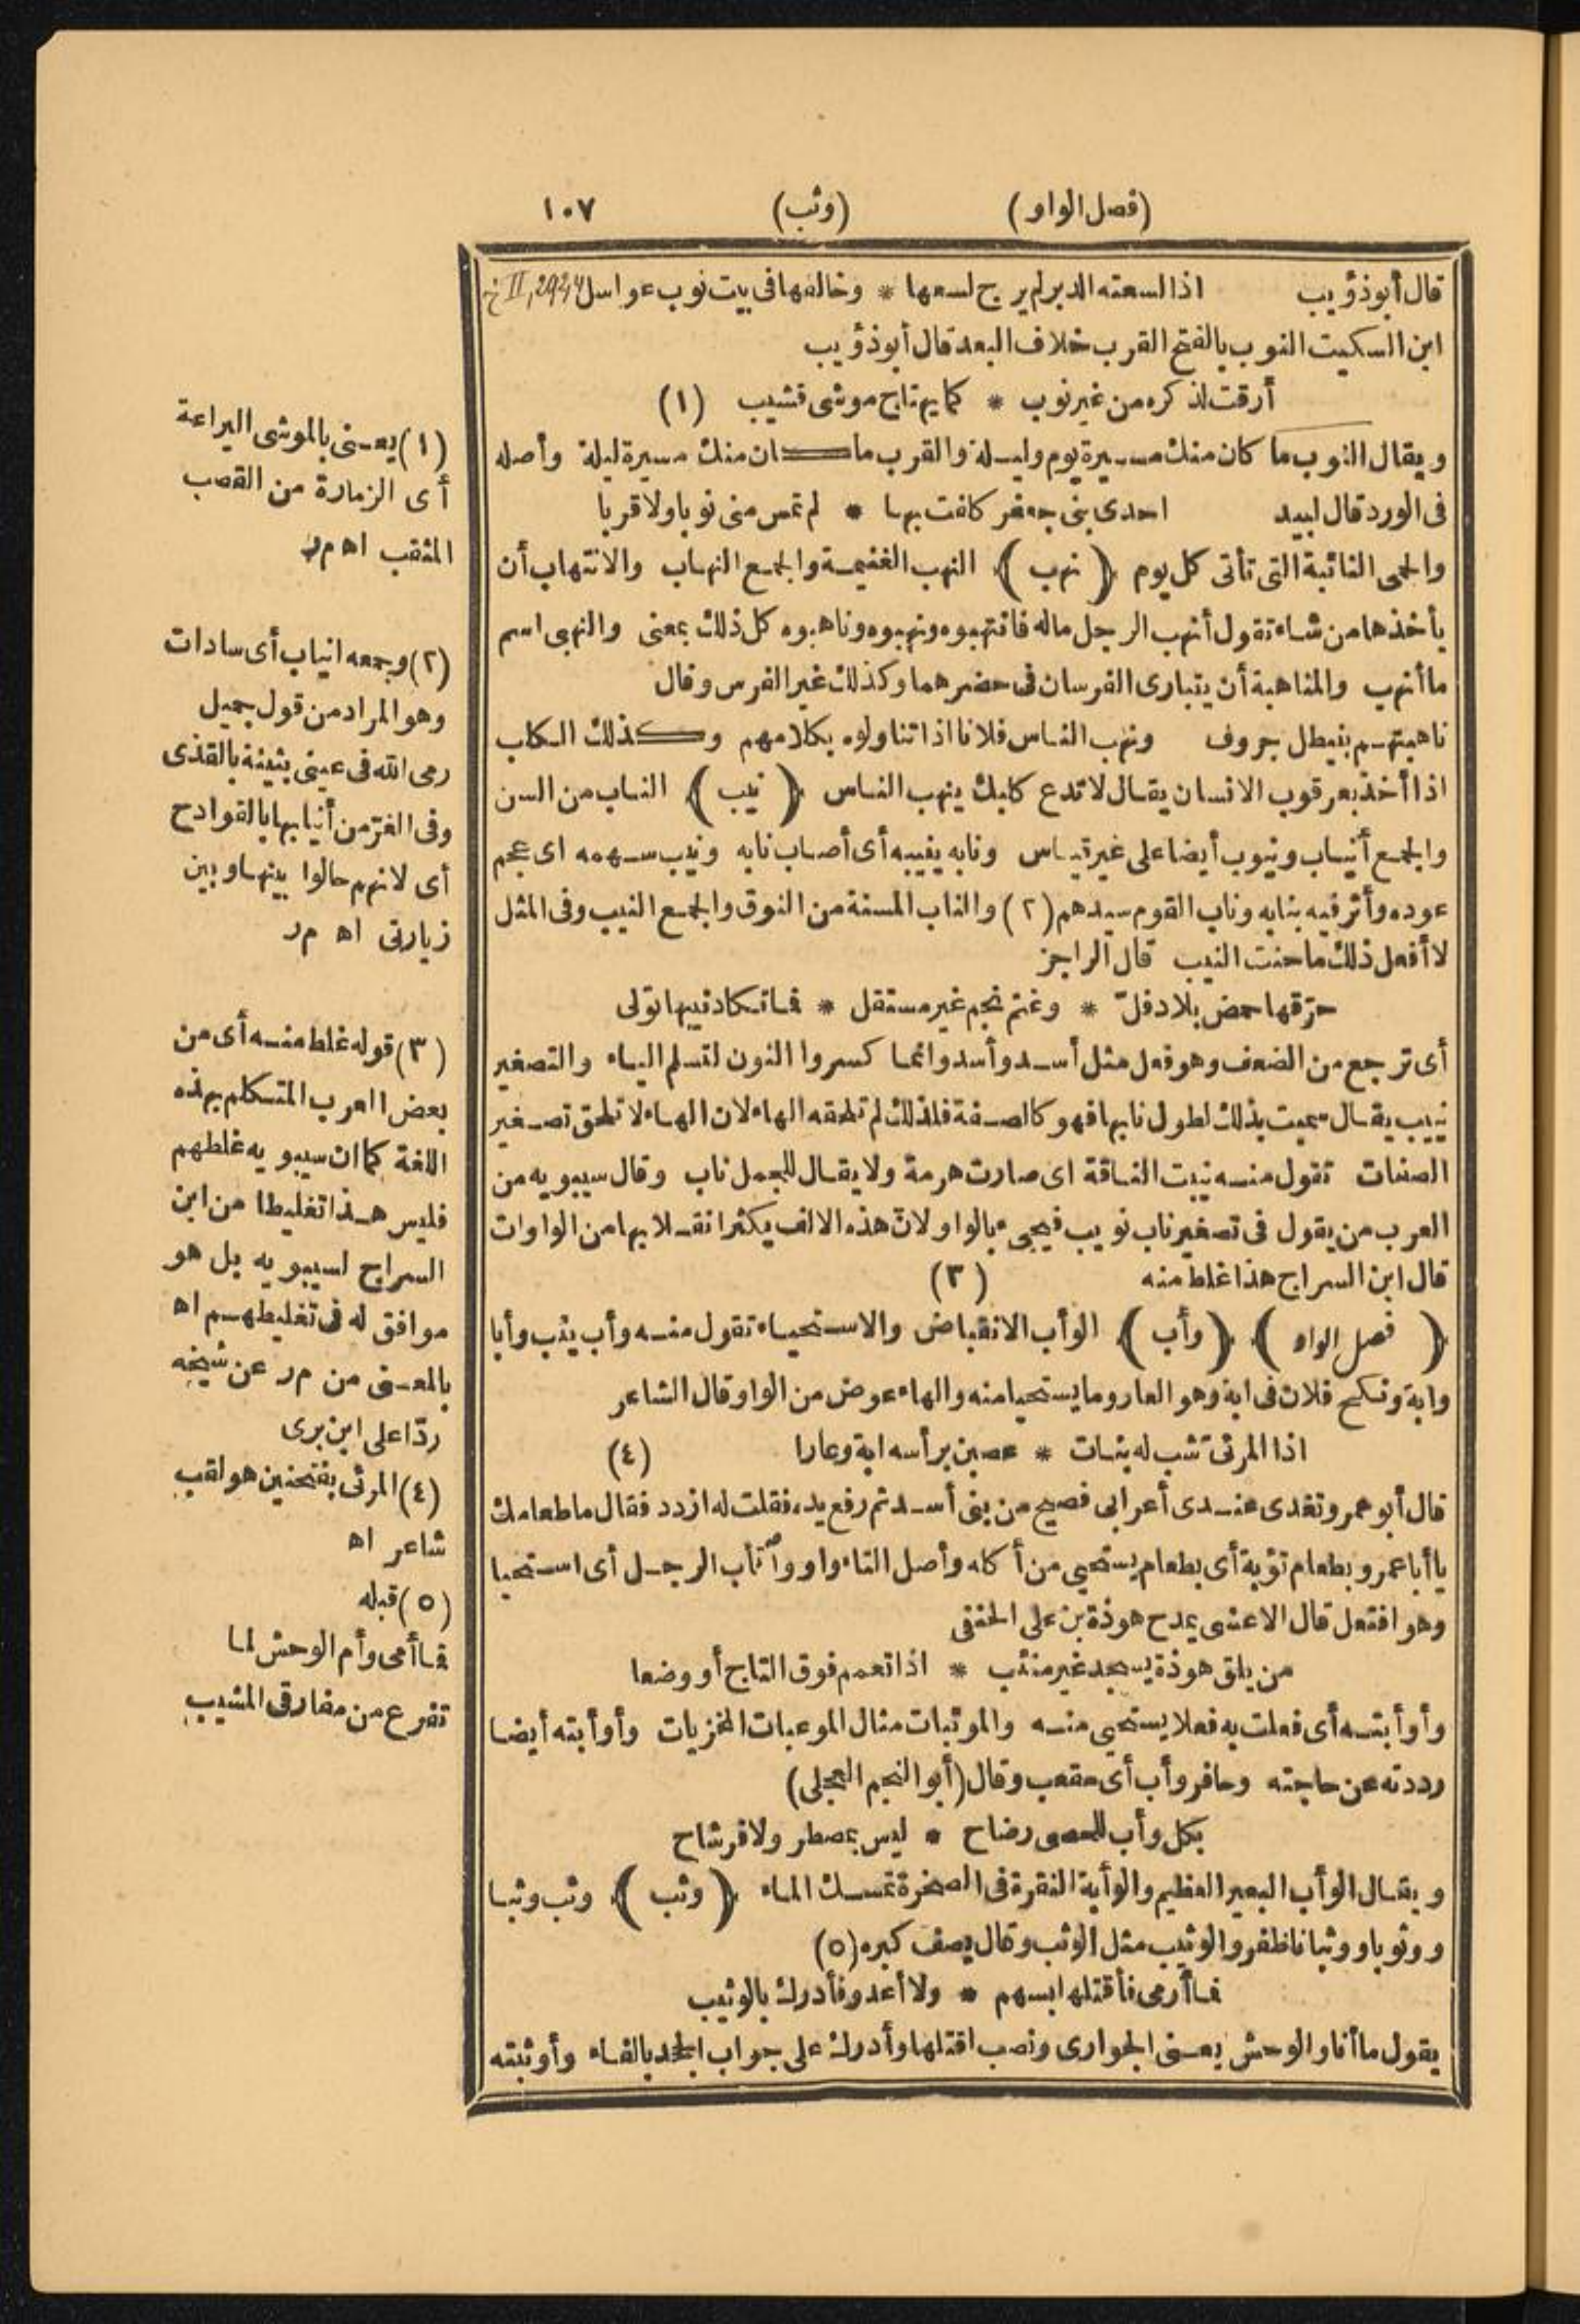 (فصل الواو) (وثب) ١٠٧
قال أبوذؤيب اذا لسعته الدبر لم يرج لسعها * وخالفها فى بيت نوب عواسل
ابن السكيت النوب بالفتح القرب خلاف البعد قال أبوذؤيب
أرقت لذكره من غير نوب * كما يهتاج موشى قشيب (١)
ويقال النوب ما كان منك مسيرة يوم وليلة والقرب ما كان منك مسيرة ليلة وأصله
فى الورد قال لبيد احدى بنى جعفر كلفت بها * لم تمس منى نوبا ولا قربا
والحمى النائبة التى تأتى كل يوم ﴿نهب﴾ النهب الغنيمة والجمع النهاب والانتهاب أن
يأخذها من شاء تقول أنهب الرجل ماله فانتهبوه ونهبوه وناهبوه كل ذلك بمعنى والنهبى اسم
ما أنهب والمناهبة أن يتبارى الفرسان فى حضرهما وكذلك غير الفرس وقال
ناهبتهم بنيطل جروف ونهب الناس فلانا اذا تناولوه بكلامهم وكذلك الكلب
اذا أخذ بعرقوب الانسان يقال لا تدع كلبك ينهب الناس ﴿نيب﴾ الناب من السن
والجمع أنياب ونيوب أيضا على غير قياس ونابه ينيبه أى أصاب نابه ونيب سهمه اى عجم
عوده وأثر فيه بنابه وناب القوم سيدهم (٢) والناب المسنة من النوق والجمع النيب وفى المثل
لا أفعل ذلك ما حنت النيب قال الراجز
حرّقها حمض بلاد فلّ * وغتم نجم غير مستقل * فما تكاد نيبها تولى
أى ترجع من الضعف وهو فعل مثل أسد وأسد وانما كسروا النون لتسلم الياء والتصغير
نييب يقال سميت بذلك لطول نابها فهو كالصفة فلذلك لم تلحقه الهاء لان الهاء لا تلحق تصغير
الصفات تقول منه نيبت الناقة اى صارت هرمة ولا يقال للجمل ناب وقال سيبويه من
العرب من يقول فى تصغير ناب نويب فيجىء بالواو لانّ هذه الالف يكثر انقلابها من الواوات
قال ابن السراج هذا غلط منه (٣)
﴿فصل الواو﴾ ﴿وأب﴾ الوأب الانقباض والاستحياء تقول منه وأب يئب وأبا
وابة ونكح فلان فى ابة وهو العار وما يستحيا منه والهاء عوض من الواو قال الشاعر
اذا المرئى تشب له بنات * عصبن برأسه ابة وعارا (٤)
قال أبو عمرو تغدى عندى أعرابى فصيح من بنى أسد ثم رفع يده فقلت له ازدد فقال ما طعامك
يا أبا عمرو بطعام تؤبة أى بطعام يستحيى من أكله وأصل التاء واو واتأب الرجل أى استحيا
وهو افتعل قال الاعشى يمدح هوذة بن على الحنفى
من يلق هوذة يسجد غير متئب * اذا تعمم فوق التاج أو وضعا
وأوأبته أى فعلت به فعلا يستحيى منه والموئبات مثال الموعبات المخزيات وأوأبته أيضا
رددته عن حاجته وحافر وأب أى مقعب وقال (أبو النجم العجلى)
بكل وأب للحصى رضاح * ليس بمصطر ولا فرشاح
ويقال الوأب البعير العظيم والوأبة النقرة فى الصخرة تمسك الماء ﴿وثب﴾ وثب وثبا
ووثوبا ووثبانا طفر والوثيب مثل الوثب وقال يصف كبره (٥)
فما أرمى فأقتلها بسهم * ولا أعدو فأدرك بالوثيب
يقول ما أنا والوحش يعنى الجوارى ونصب اقتلها وأدرك على جواب الجحد بالفاء وأوثبته
(١) يعنى بالموشى اليراعة
أى الزمارة من القصب
المثقب اه مر
(٢) وجمعه انياب أى سادات
وهو المراد من قول جميل
رمى الله فى عينى بثينة بالقذى
وفى الغرّ من أنيابها بالقوادح
أى لانهم حالوا بينها وبين
زيارتى اه مر
(٣) قوله غلط منه أى من
بعض العرب المتكلم بهذه
اللغة كما ان سيبويه غلطهم
فليس هذا تغليطا من ابن
السراج لسيبويه بل هو
موافق له فى تغليطهم اه
بالمعنى من مر عن شيخه
ردّا على ابن برى
(٤) المرئى بفتحتين هو لقب
شاعر اه
(٥) قبله
فما أمى وأم الوحش لما
تفرع من مفارقى المشيب